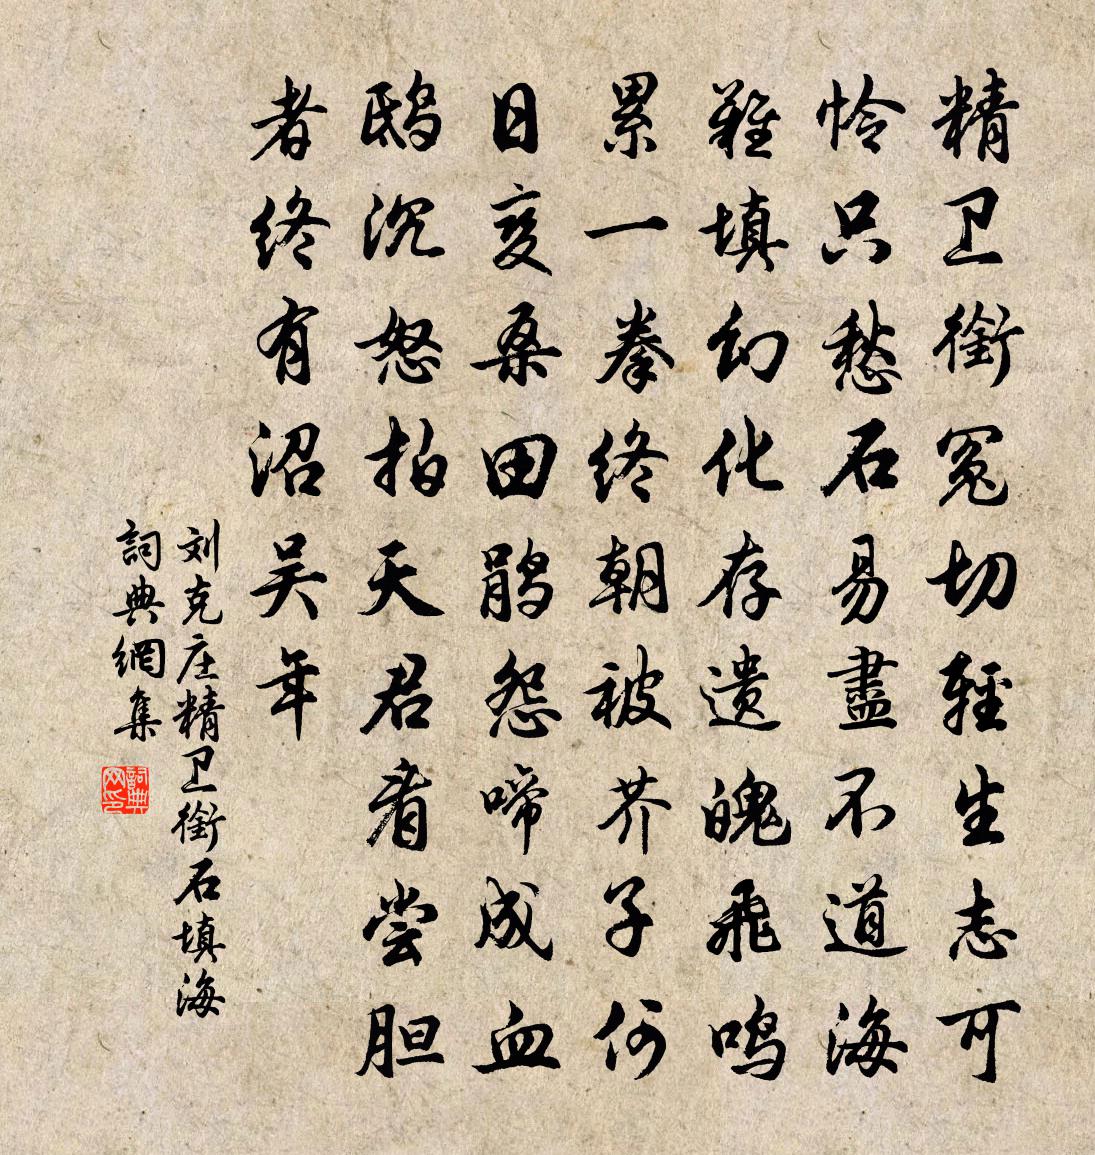 精卫銜冤切輕生志可
怜只愁石易盡不道海
難填幻化存遗魄飛鸣
累一拳终朝被芥子何
日变桑田鹃怨啼成血
鸱沉怒拍天君看尝胆
者终有沼吴年
刘克庄精卫銜石填海
詞典網集
詞典网印